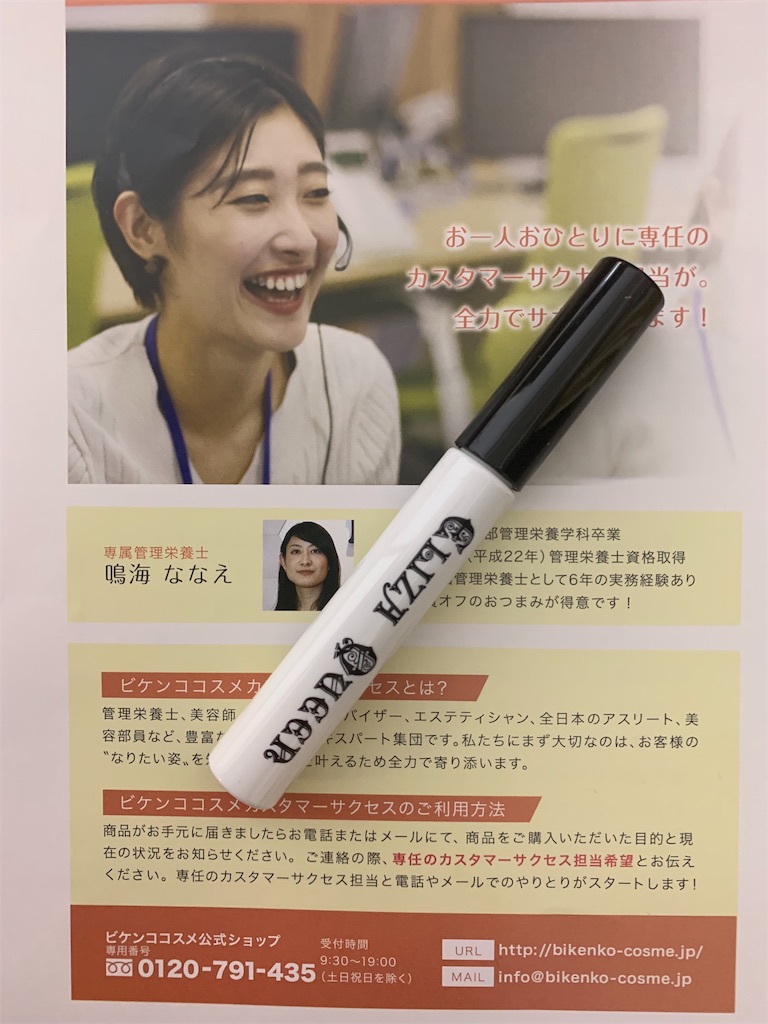 お一人おひとりに専任の
カスタマーサクセ 当が。
全力でサ ます！
専属管理栄養士
鳴海 ななえ
部管理栄養学科卒業
(平成22年）管理栄養士資格取得
管理栄養士として6年の実務経験あり
オフのおつまみが得意です！
ALIZA
QUEEN
ビケンココスメカ セスとは？
管理栄養士、美容師 バイザー、エステティシャン、全日本のアスリート、美
容部員など、豊富 キスパート集団です。私たちにまず大切なのは、お客様の
“なりたい姿”を 叶えるため全力で寄り添います。
ビケンココスメカスタマーサクセスのご利用方法
商品がお手元に届きましたらお電話またはメールにて、商品をご購入いただいた目的と現
在の状況をお知らせください。ご連絡の際、専任のカスタマーサクセス担当希望とお伝え
ください。専任のカスタマーサクセス担当と電話やメールでのやりとりがスタートします！
ビケンココスメ公式ショップ
専用番号
0120-791-435
受付時間
9:30〜19:00
（土日祝日を除く）
URL http://bikenko-cosme.jp/
MAIL info@bikenko-cosme.jp